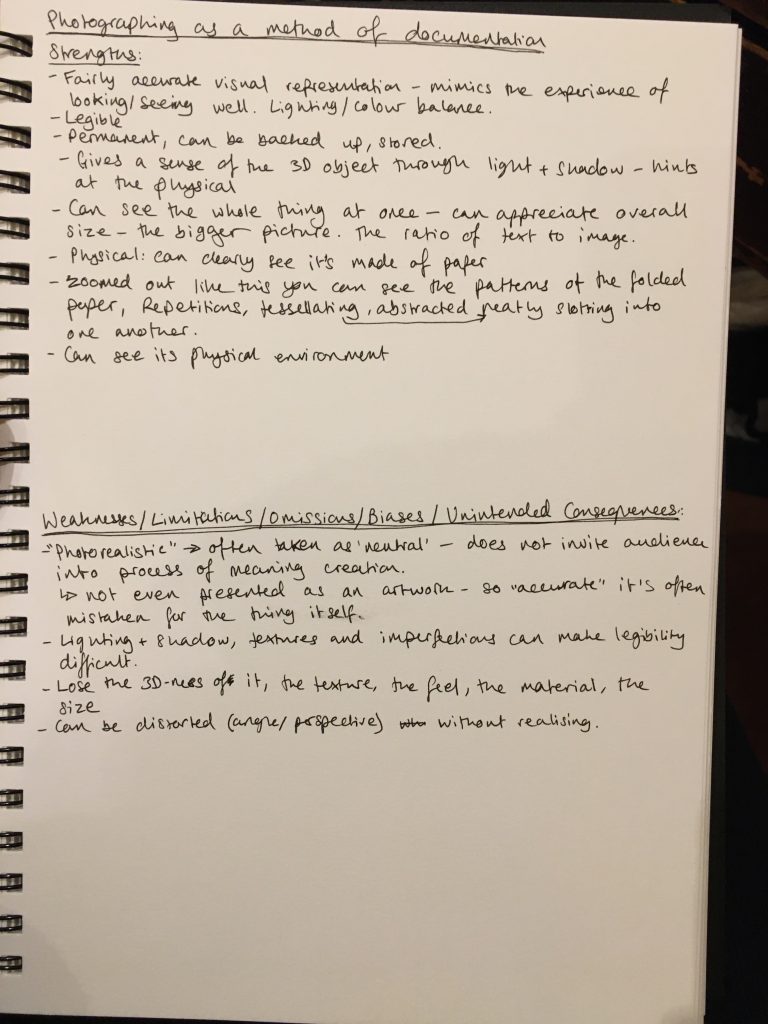 Photographing as a method of documentation
Strengths:
- Fairly accurate visual representation - mimics the experience of
looking/seeing well. Lighting/colour balance.
- Legible
- Permanent, can be backed up, stored.
- Gives a sense of the 3D object through light + shadow - hints
at the physical
- Can see the whole thing at once - can appreciate overall
size - the bigger picture. The ratio of text to image.
- Physical: can clearly see it's made of paper
- zoomed out like this you can see the patterns of the folded
paper, Repetitions, tessellating, abstracted neatly slotting into
one another.
- Can see its physical environment
Weaknesses/Limitations/Omissions/Biases/Unintended Consequences:
- "Photorealistic" → often taken as 'neutral' - does not invite audience
into process of meaning creation.
↳ not even presented as an artwork - so "accurate" it's often
mistaken for the thing itself.
- Lighting + shadow, textures and imperfections can make legibility
difficult.
- Lose the 3D-ness of it, the texture, the feel, the material, the
size
- Can be distorted (angle/perspective) without realising.